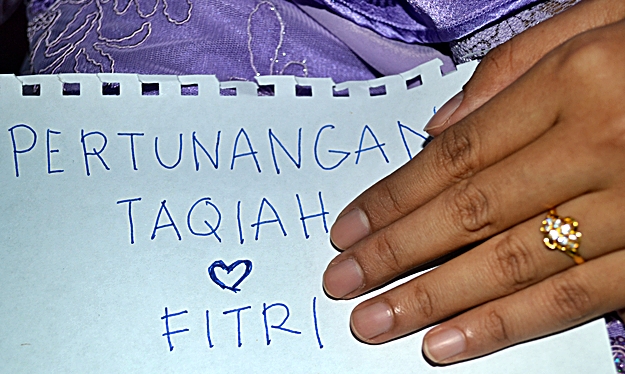 PERTUNANGAN
TAQIAH
FITRI